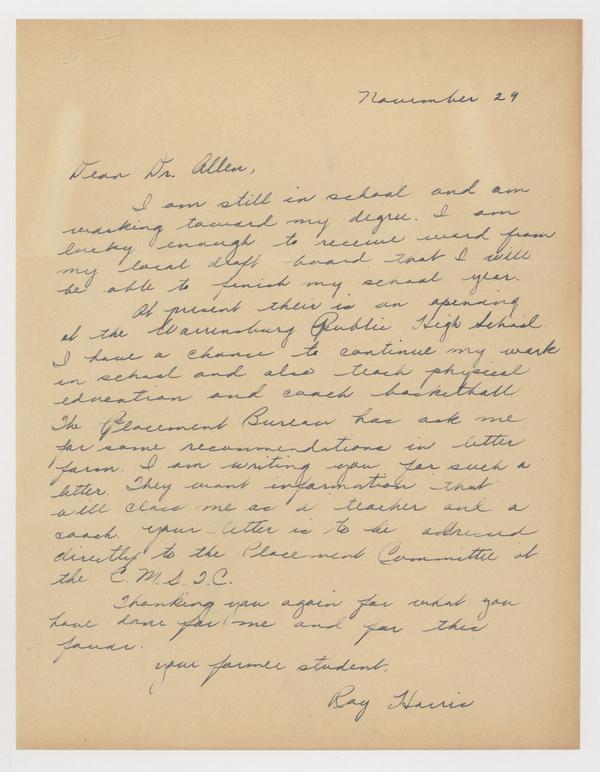 November 29
Dear Dr. Allen,
I am still in school and am
working toward my degree. I am
lucky enough to receive word from
my local draft board that I will
be able to finish my school year.
At present their is an opening
at the Warrensburg Public High School.
I have a chance to continue my work
in school and also teach physical
education and coach basketball.
The Placement Bureau has ask me
for some recommendations in letter
form. I am writing you for such a
letter. They want information that
will class me as a teacher and a
coach. Your letter is to be adressed
directly to the Placement Committee at
the C. M. S. T. C.
Thanking you again for what you
have done for me and for this
favor.
your former student,
Ray Harris